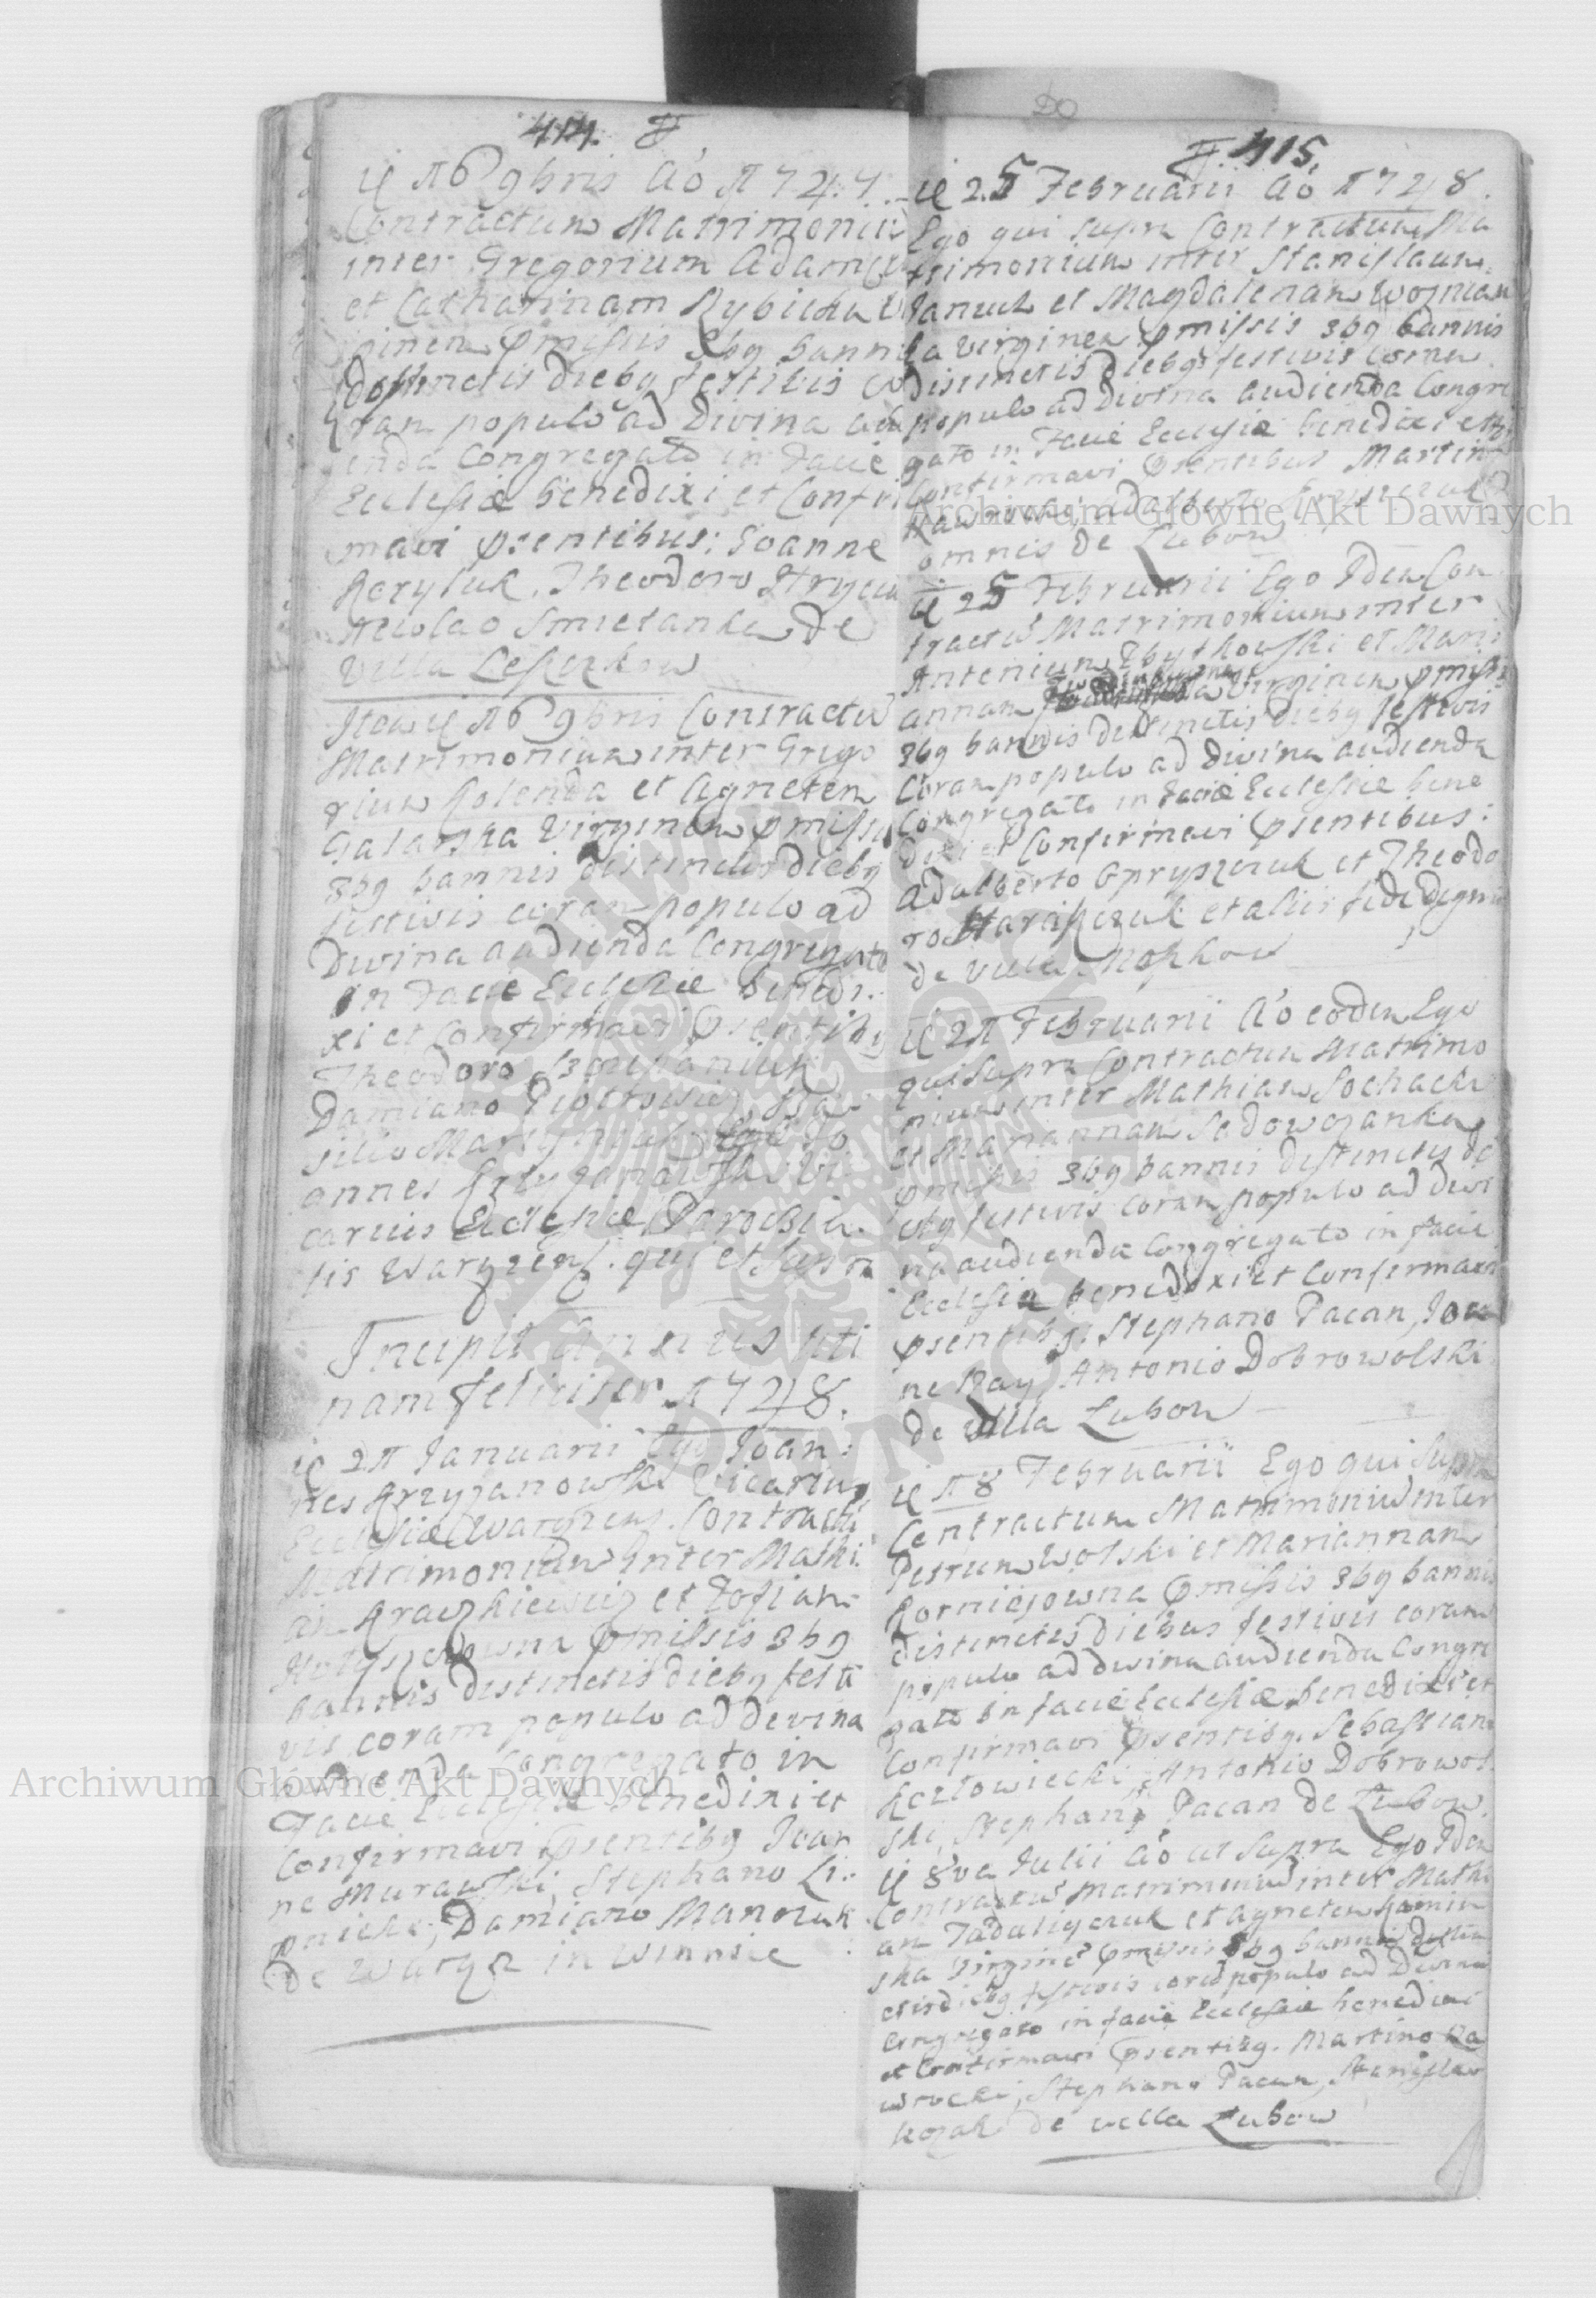 414.
ię 16 9bris Aō 1747.
Contractum Matrimonium
inter Gregorium Adamczu
et Catharinam Rybicka Vi
ginem pmissis 3bg bannis
distinctis diebg festivis co
ram populo ad Divina audi
enda Congregato in Facie
Ecclesiæ benedixi et Confir
mavi psentibus: Joanne
Koryluk, Theodoro Strycu
Nicolao Smietanka de
Villa Leszczkow
Item ię 16 9bris Contractu
Matrimonium inter Grego
rium Kolenda et Agnetem
Galarska Virginem pmissis
3bg bannis distinctis diebg
festivis coram populo ad
Divina audienda Congregato
in Facie Ecclesiæ benedi
xi et Confirmavi psentibg
Theodoro
Damiano
silio Ego Jo
annes Krzyzanowski Vi
carius Ecclesiæ Parochia
lis Waręzens. qui et supra
Incipit Annus uti
nam feliciter 1748.
ię 21 Januarii Ego Joan:
nes Krzyzanowski Vicarius
Ecclesiæ Waręzens. Contractu
Matrimonium inter Mathi
am Kraczkiewicz et Zofiam
pmissis 3bg
bannis distinctis diebg festi
vis coram populo ad devina
audienda Congregato in
Facie Ecclesiæ benedixi et
Confirmavi psentibg Joan
ne Murawski, Stephano Li:
pnicki, Damiano Manczuk
de Waręz in Winnice
415.
ię 25 Februarii Aō 1748.
Ego qui supra Contractum Ma
trimonium inter Stanislaum
Janiuk et Magdalenam Woznian
ka Virginem pmissis 3bg bannis
distinctis diebg festivis Coram
populo ad Divina audienda Congre
gato in Facie Ecclesiæ benedixi et
Confirmavi psentibus Martino
Kawrocki, Adalberto
omnes de Lubow
ię 25 Februarii Ego Idem Con
tractu Matrimonium inter
Antonium Zbythowski et Mari
annam Virginem pmissis
3bg bannis distinctis diebg festivis
Coram populo ad Divina audienda
Congregato in Facie Ecclesiæ bene
dixi et Confirmavi psentibus:
Adalberto Opryszczuk et Theodo
ro Haraszczuk et aliis fide dignis
de Villa Mophow
ię 21 Februarii Aō eodem Ego
qui supra Contractum Matrimo
nium inter Mathiam Sochacki
et Mariannam Sadowozanka
pmissis 3bg bannis distinctis di
ebg festivis Coram populo ad Divi
na audienda Congregato in facie
Ecclesiæ benedixi et Confirmavi
psentibg. Stephano Pacan, Joan
ne Kay, Antonio Dobrowolski
de Villa Lubow
ię 18 Februarii Ego qui Supra
Contractum Matrimoniu inter
Petrum Wolski et Mariannam
Korniejowna pmissis 3bg bannis
distinctis diebus festivis coram
populo ad divina audienda Congre
gato in facie Ecclesiæ benedixi et
Confirmavi psentibg. Sebastiano
Kozlowiecki, Antonio Dobrowol
ski, Stephano Pacan de Lubow.
ię 8va Julii Aō ut supra Ego Idem
Contractu Matrimoniu inter Mathi
am Fadaliyczuk et Agnetem Kamin
ska Virgine pmissis 3bg bannis distin
ctis diebg festivis cora populo ad Divina
Congregato in facie Ecclesiæ benedixi
et Confirmavi psentibg. Martino Ka
wrocki, Stephano Pacan, Stanislao
Kozak de villa Lubow
Archiwum Główne Akt Dawnych
Archiwum Główne Akt Dawnych